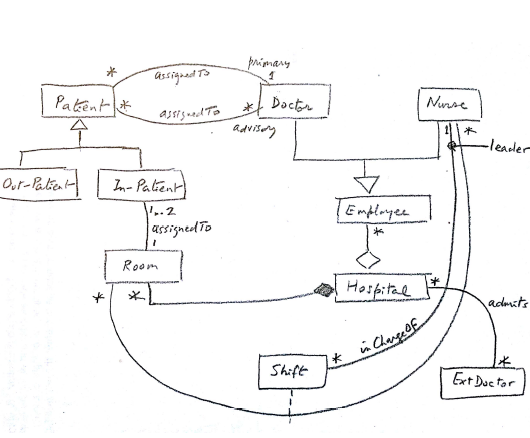 primary
* assignedTo 1
Patient
* assignedTo *
Doctor
advisory
Nurse
1 *
leader
Out-Patient
In-Patient
1..2
assignedTo
1
Employee
*
Room
* *
Hospital
*
admits
inChargeOf
*
Shift
*
ExtDoctor